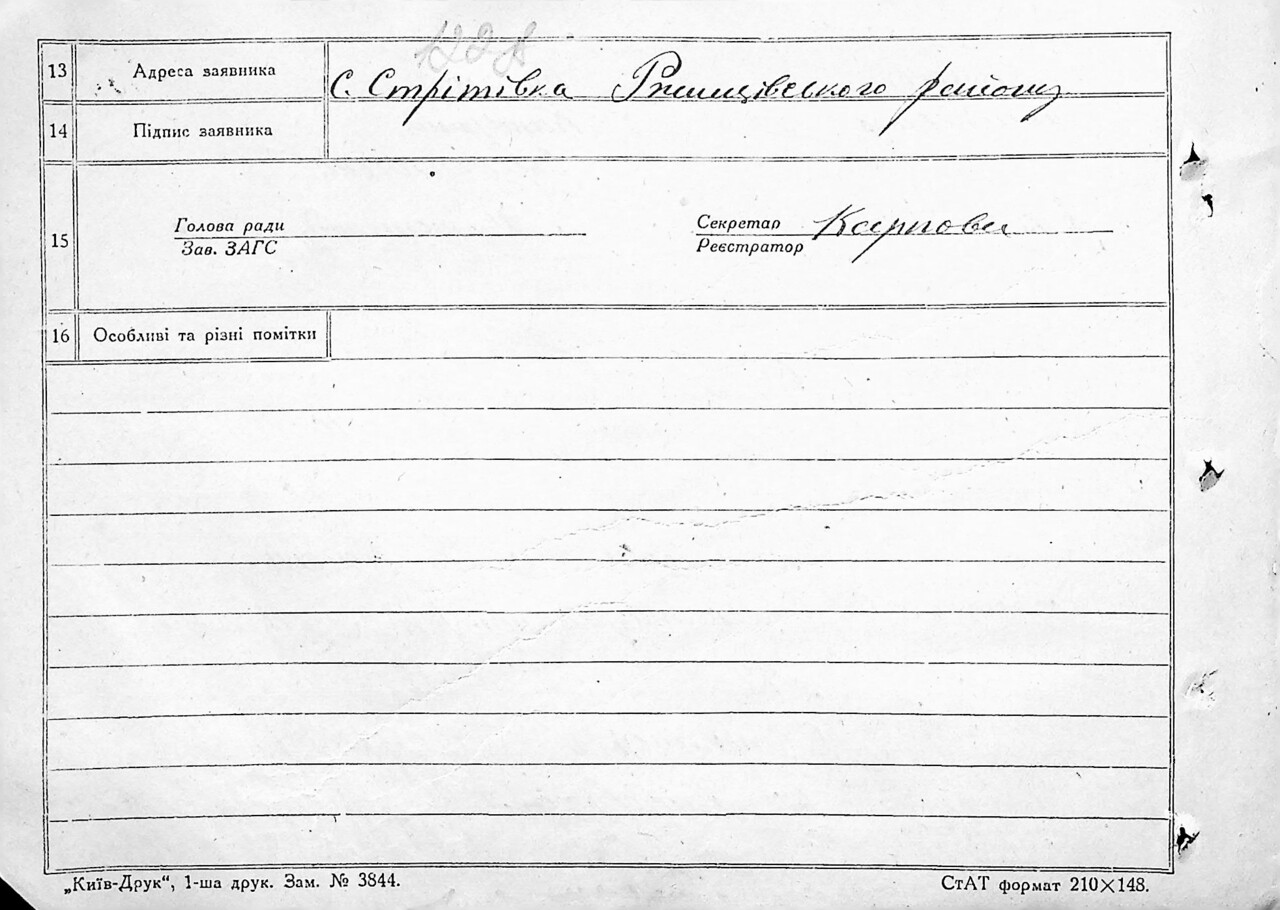 13 Адреса заявника С. Стрітівка Ржищівського району
14 Підпис заявника
15 Голова ради Секретар Карпова
Зав. ЗАГС Реєстратор
16 Особливі та різні помітки
„Київ-Друк“, 1-ша друк. Зам. № 3844. СтАТ формат 210×148.